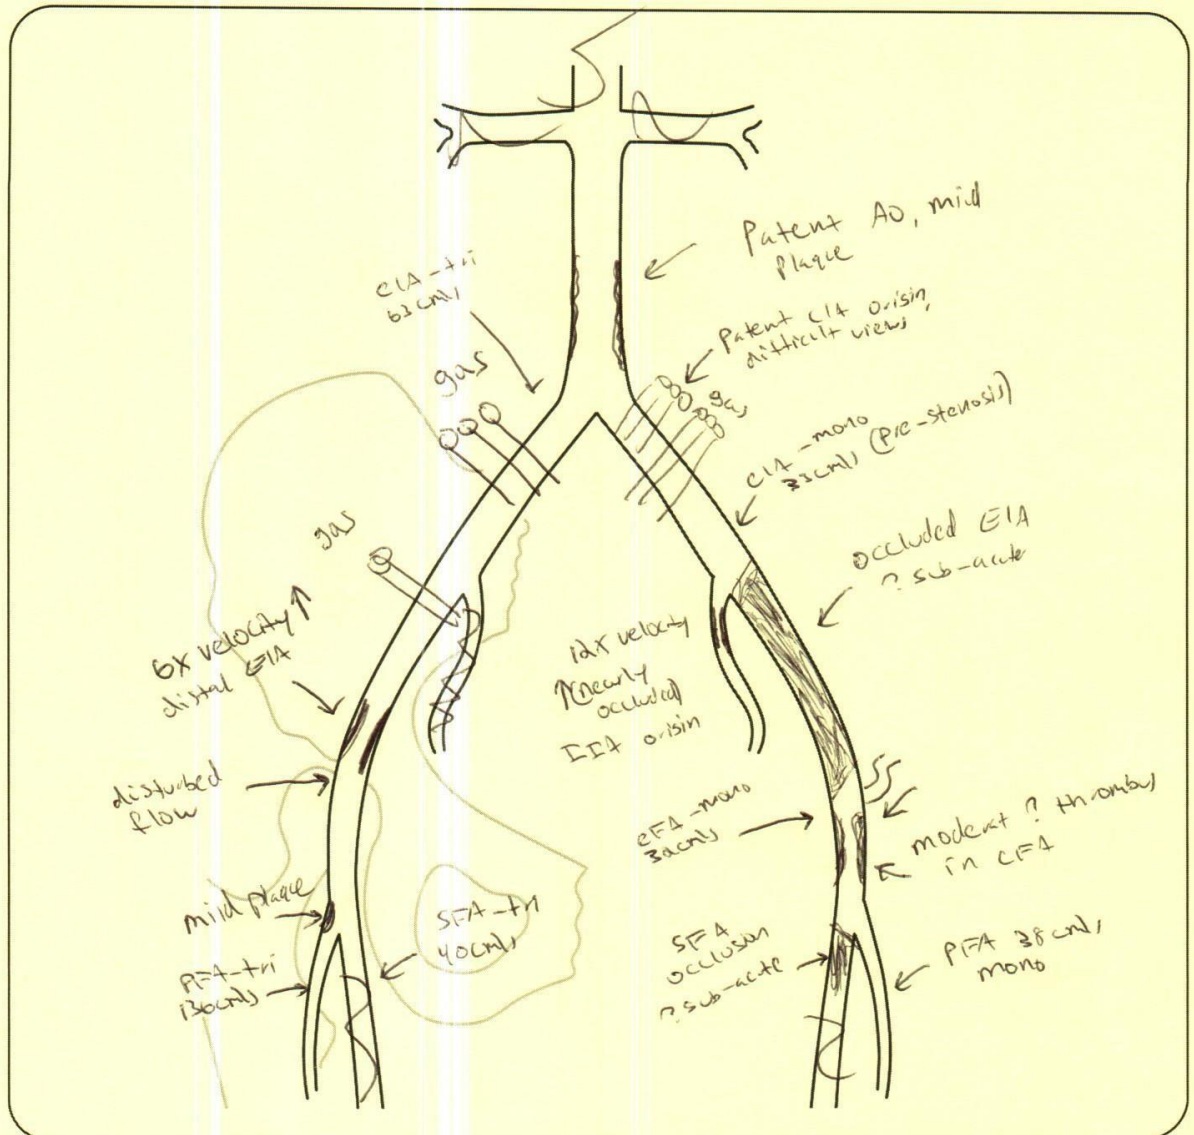 Patent AO, mild
plaque
CIA-tri
63cm/s
gas
Patent CIA origin,
difficult views
gas
CIA-mono
33cm/s (pre-stenosis)
gas
occluded EIA
? sub-acute
6x velocity ↑
distal EIA
12x velocity
↑(nearly
occluded)
IIA origin
disturbed
flow
CFA-mono
32cm/s
moderat ? thrombus
in CFA
mild plaque
SFA-tri
40cm/s
SFA
occlusion
? sub-acute
PFA 38cm/s
mono
PFA-tri
136cm/s